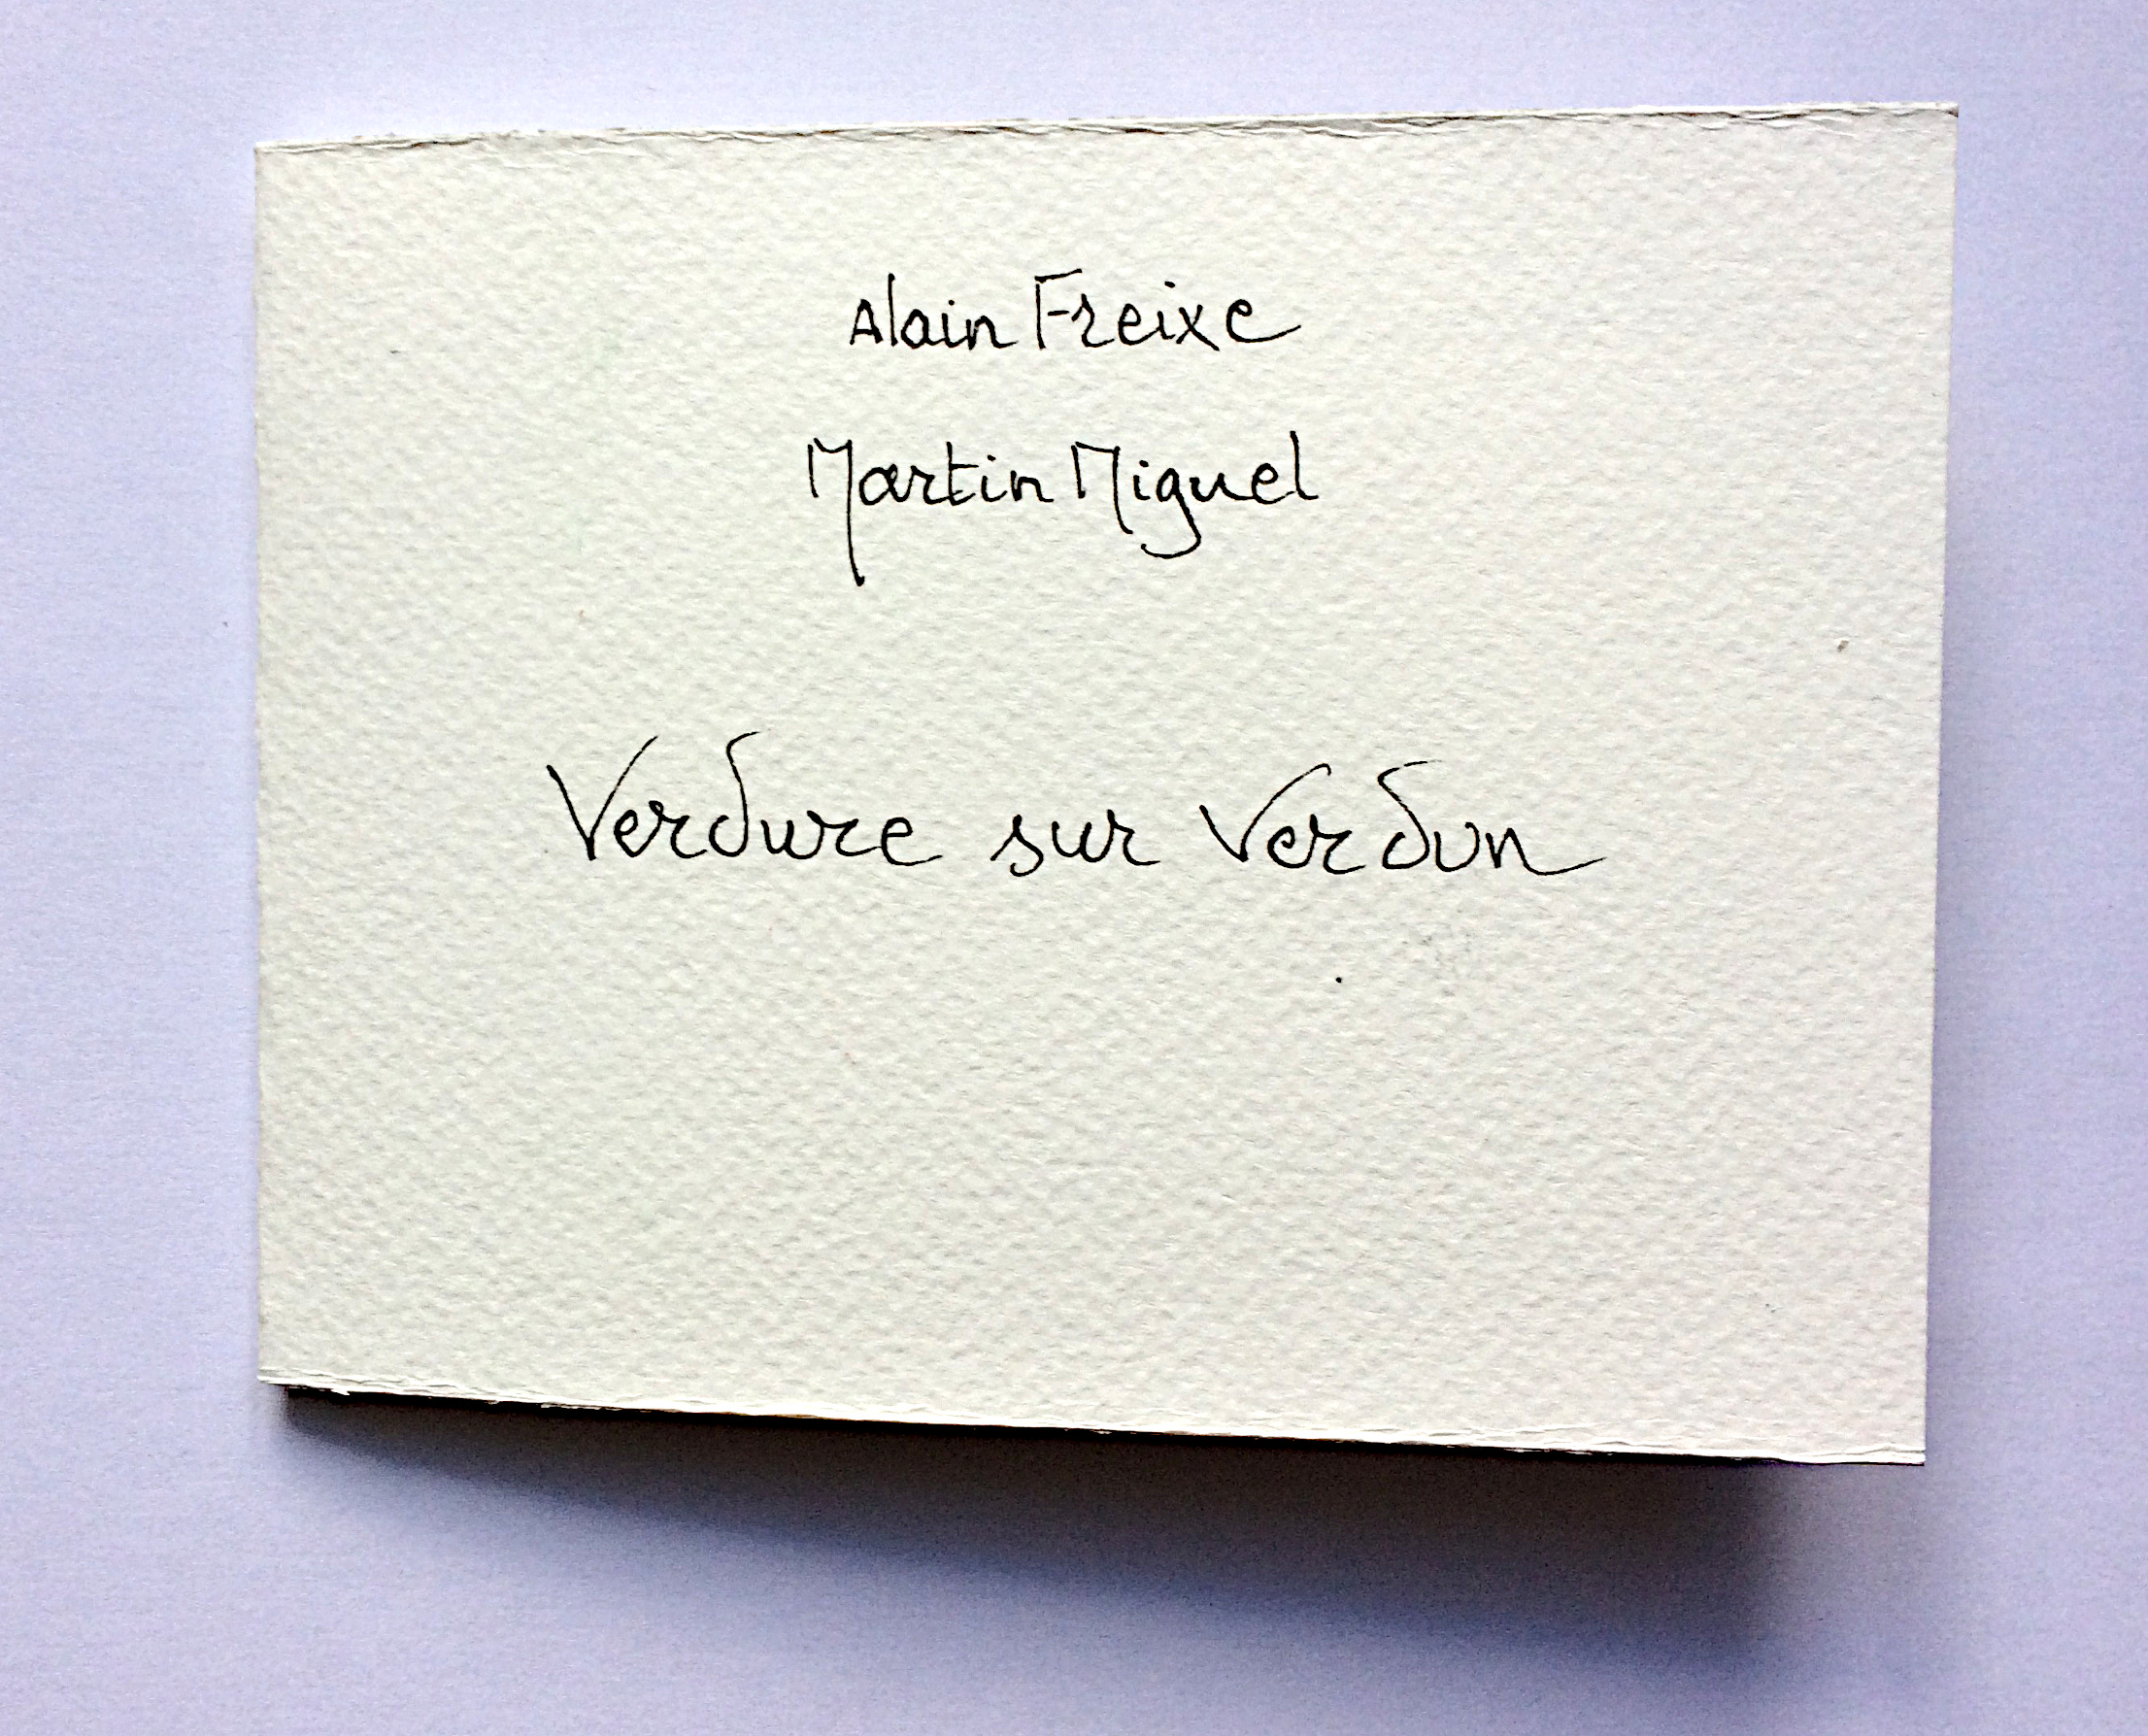 Alain Freixe
Martin Miguel
Verdure sur Verdun